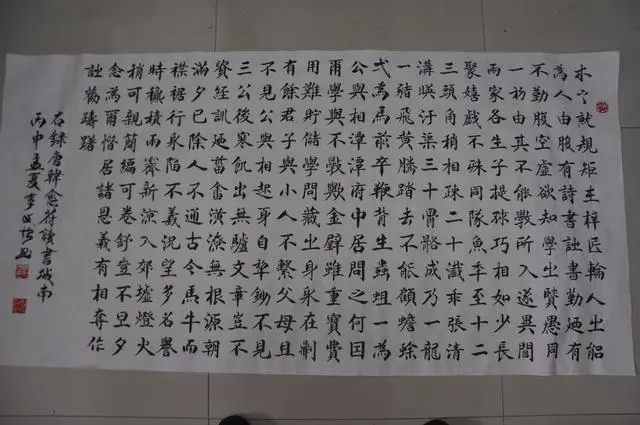 木之就規矩在梓匠輪人之能
為人由腹有詩書詩書勤廼有
不勤腹空虛欲知學之賢愚同
一初由其不能學所入遂異閭
兩家各生子提孩巧相如少長
聚嬉戲不殊同隊魚年至十二
三頭角稍相疎二十漸乖張清
溝映汙渠三十骨骼成乃一龍
一豬飛黃騰踏去不能顧蟾蜍
一為馬前卒鞭背生蟲蛆一為
公與相潭潭府中居問之何因
爾學與不學歟金璧雖重寶費
用難貯儲學問藏之身身在則
有餘君子與小人不繫父母且
不見公與相起身自犁鋤不見
三公後寒飢出無驢文章豈不
貴經訓廼菑畬潢潦無根源朝
滿夕已除人不通古今馬牛而
襟裾行身陷不義況望多名譽
時穐積雨霽新涼入郊墟燈火
稍可親簡編可卷舒豈不旦夕
念為爾惜居諸恩義有相奪作
詩勸躊躇
右錄唐韓愈符讀書城南
丙申孟夏李